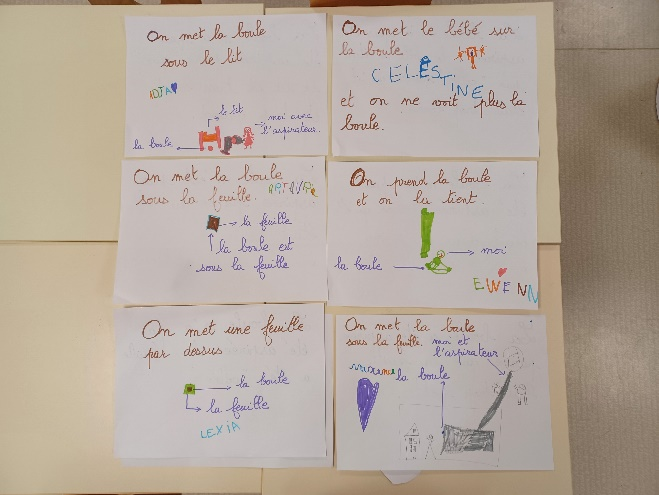 On met la boule
sous le lit
IDJA
le lit
moi avec
l'aspirateur.
la boule
On met le bébé sur
la boule
CELESTINE
et on ne voit plus la
boule.
On met la boule
sous la feuille.
la feuille
la boule est
sous la feuille
On prend la boule
et on la tient.
moi
la boule
EWENN
On met une feuille
par dessus
la boule
la feuille
LEXIA
On met la boule
sous la feuille.
moi et
l'aspirateur
la boule